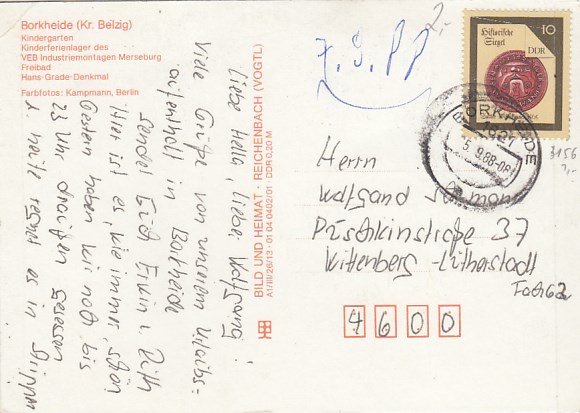 Borkheide (Kr. Belzig)
Kindergarten
Kinderferienlager des
VEB Industriemontagen Merseburg
Freibad
Hans-Grade-Denkmal
Farbfotos: Kampmann, Berlin
Liebe Hella, lieber Wolfgang!
Viele Grüße von unserem Urlaubs-
aufenthalt in Borkheide
senden Euch Erwin u. Ruth
Hier ist es, wie immer, schön
Gestern haben wir noch bis
23 Uhr draußen gesessen
u. heute regnet es in Strippen
BILD UND HEIMAT · REICHENBACH (VOGTL)
A1/III/26/13 · 01 04 0402/01 · DDR 0,20 M
Historische
Siegel
10
DDR
BORKHEIDE
1821
5.9.88-
Herrn
Wolfgang
Puschkinstraße 37
Wittenberg-Lutherstadt
4600
3156